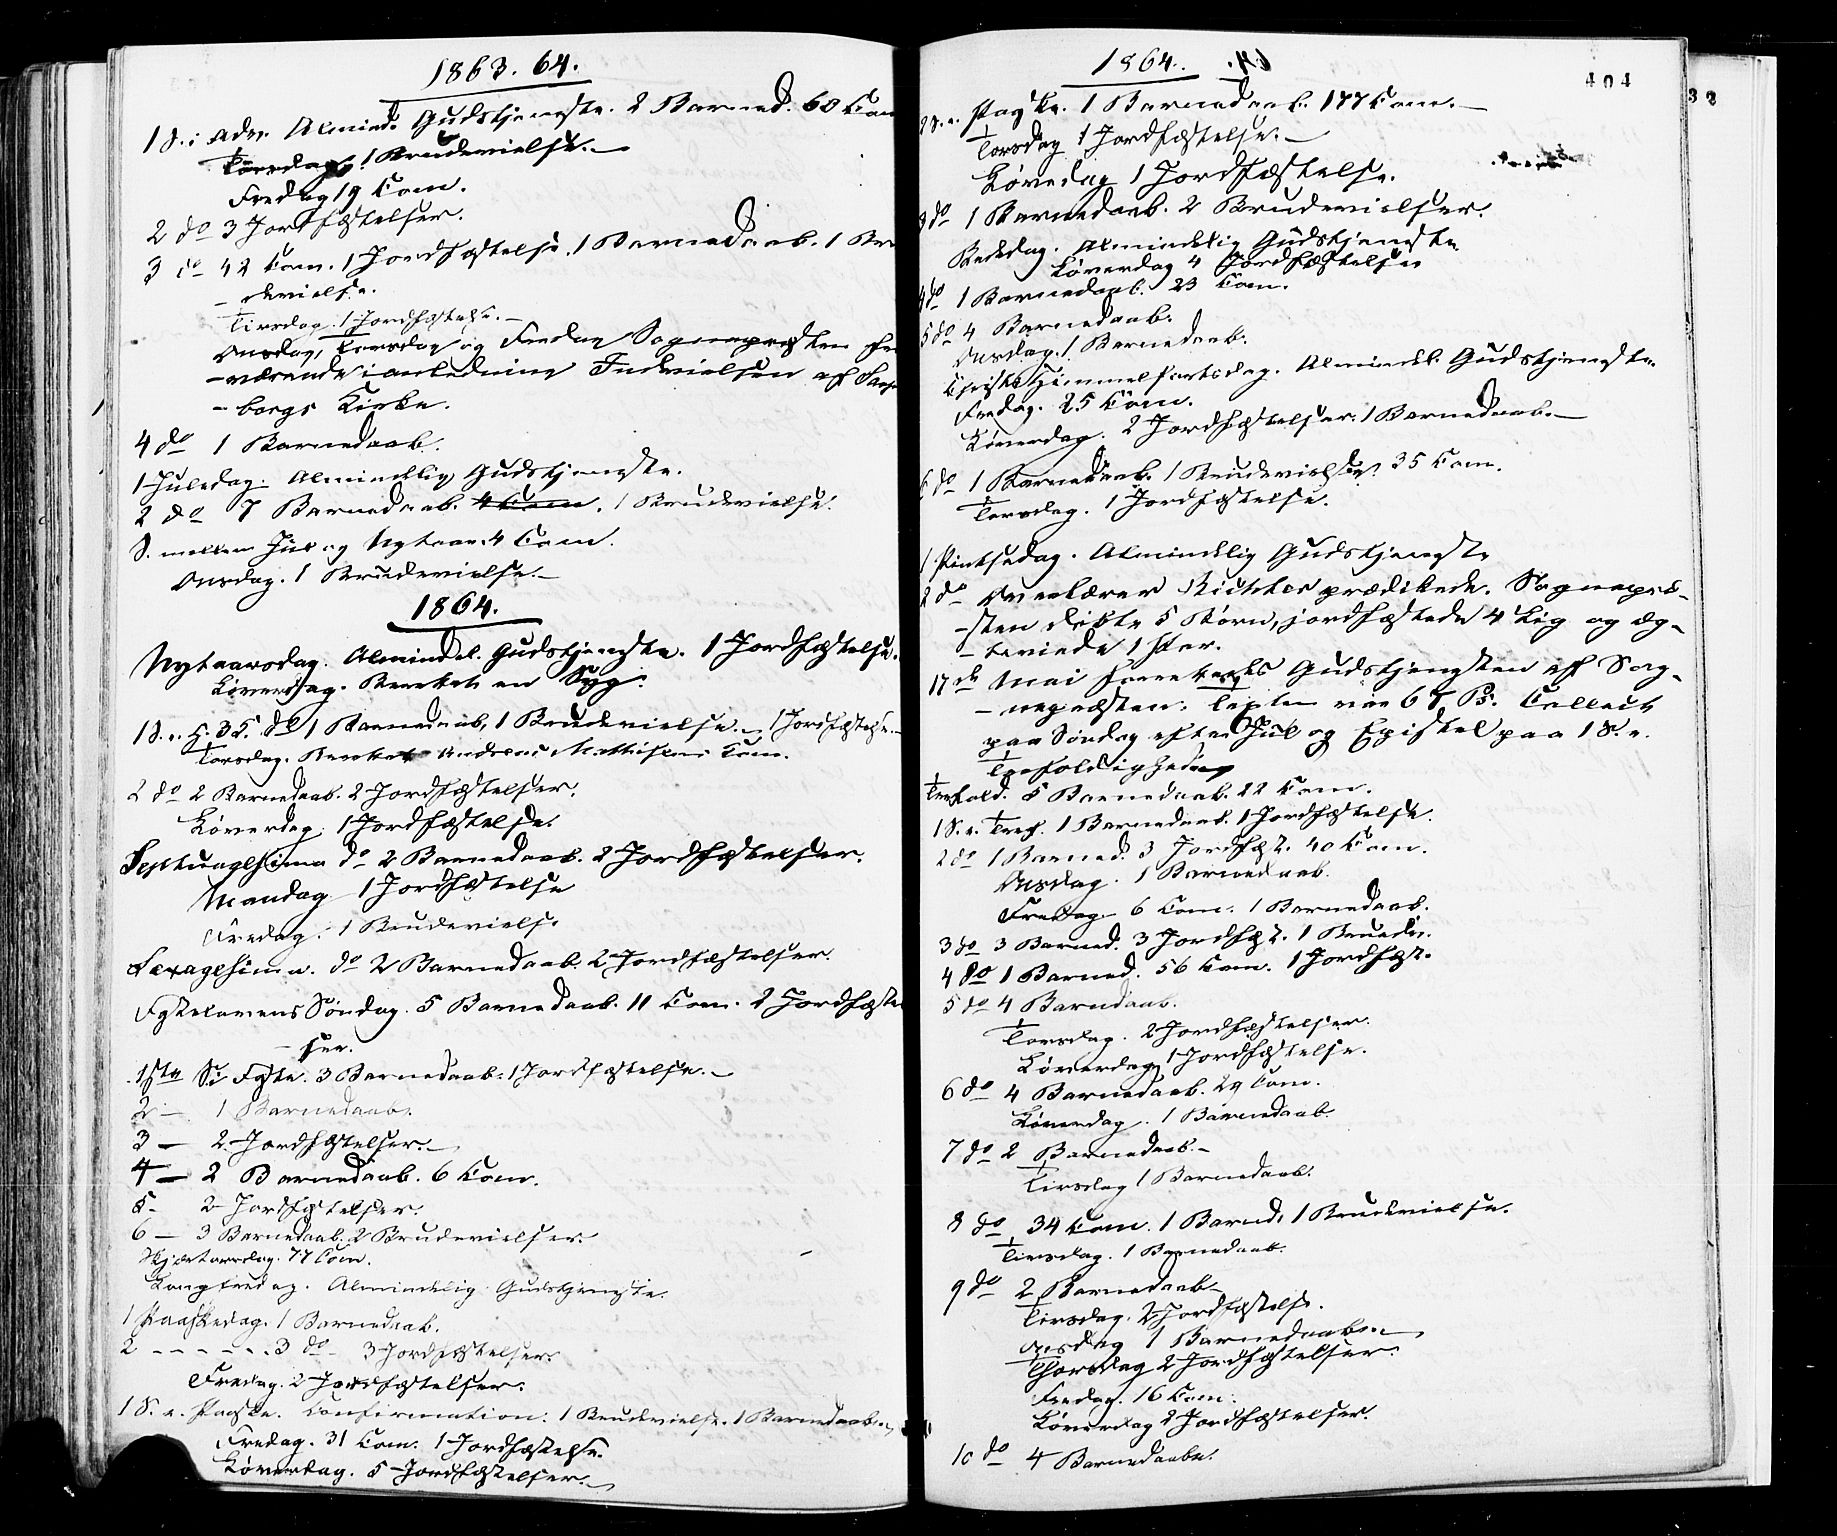 1863. 64.
1 S. i Adv. Almind. Gudstjeneste. 2 Barned. 60 Com
Torsdag 1 Brudevielse.
Fredag 19 Com.
2 do 3 Jordfæstelser.
3 do 42 Com. 1 Jordfæstelse. 1 Barnedaab. 1 Bru
- devielse.
Tirsdag. 1 Jordfæstelse.
Onsdag, Torsdag og Fredag Sognepresten fra
- værende i anledning Indvielsen af
- borgs Kirke.
4 do 1 Barnedaab.
1 Juledag. Almindelig Gudstjeneste.
2 do 7 Barnedaab. 4 Com. 1 Brudevielse.
S. mellem Jul og Nytaar. 4 Com.
Onsdag. 1 Brudevielse.
1864.
Nytaarsdag. Almindel. Gudstjeneste. 1 Jordfæstelse.
Løverdag. Berettet en Syg.
1 S. e. H. 3 K. do 1 Barnedaab, 1 Brudevielse. 1 Jordfæstelse.
Torsdag. Berettet Andreas Mathisens Com.
2 do 2 Barnedaab. 2 Jordfæstelser.
Løverdag. 1 Jordfæstelse.
Septuagesima do 2 Barnedaab. 2 Jordfæstelser.
Mandag 1 Jordfæstelse
Fredag. 1 Brudevielse
Sexagesima. do 2 Barnedaab. 2 Jordfæstelser.
Fastelavens Søndag. 5 Barnedaab. 11 Com. 2 Jordfæstel
- ser.
1ste S. i Faste. 3 Barnedaab. 1 Jordfæstelse.
2 - 1 Barnedaab.
3 - 2 Jordfæstelser.
4 - 2 Barnedaab. 6 Com.
5 - 2 Jordfæstelser.
6 - 3 Barnedaab. 2 Brudevielser.
Skjærtorsdag. 77 Com.
Langfredag. Almindelig Gudstjeneste.
1 Paaskedag. 1 Barnedaab.
2 - - - - - 3 do 3 Jordfæstelser.
Fredag. 2 Jordfæstelser.
1 S. e. Paaske. Confirmation. 1 Brudevielse. 1 Barnedaab.
Fredag. 31 Com. 1 Jordfæstelse.
Løverdag. 5 Jordfæstelser.
1864.
404
2 S. e. Paaske. 1 Barnedaab. 177 Com.
Torsdag 1 Jordfæstelse.
Løverdag 1 Jordfæstelse.
3 do 1 Barnedaab. 2 Brudevielser.
Bededag. Almindelig Gudstjeneste
Løverdag 4 Jordfæstelser
4 do 1 Barnedaab. 23 Com.
5 do 4 Barnedaab.
Onsdag. 1 Barnedaab.
Christi Himmelfartsdag. Almindel. Gudstjeneste.
Fredag. 25 Com.
Løverdag. 2 Jordfæstelser. 1 Barnedaab.
6 do 1 Barnedaab. 1 Brudevielse. 35 Com.
Torsdag. 1 Jordfæstelse.
1 Pintsedag. Almindelig Gudstjeneste
2 do Overlærer Richter prædikede. Sognepræ-
- sten døbte 5 Børn, jordfæstede 4 Lig og æg-
- teviede 1 Par.
17de Mai Gudstjenesten af Sog-
- nepræsten. Texten var 67 Ps. Collect
paa Søndag efter Jul og Epistel paa 1 S. e.
Trefoldighed
Trefold. 5 Barnedaab. 22 Com.
1 S. e. Tref. 1 Barnedaab. 1 Jordfæstelse.
2 do 1 Barned. 3 Jordfæst. 40 Com.
Onsdag. 1 Barnedaab.
Fredag. 6 Com. 1 Barnedaab.
3 do 3 Barned. 3 Jordfæst. 1 Brudev.
4 do 1 Barned. 56 Com. 1 Jordfæst.
5 do 4 Barnedaab.
Torsdag. 2 Jordfæstelser.
Løverdag 1 Jordfæstelse.
6 do 4 Barnedaab. 29 Com.
Løverdag. 1 Barnedaab.
7 do 2 Barnedaab.
Tirsdag 1 Barnedaab.
8 do 34 Com. 1 Barned. 1 Brudevielse.
Tirsdag. 1 Barnedaab.
9 do 2 Barnedaab
Tirsdag. 2 Jordfæstelse.
Onsdag 1 Barnedaab.
Thorsdag 2 Jordfæstelser.
Fredag. 16 Com.
Løverdag 2 Jordfæstelser.
10 do 4 Barnedaabe.